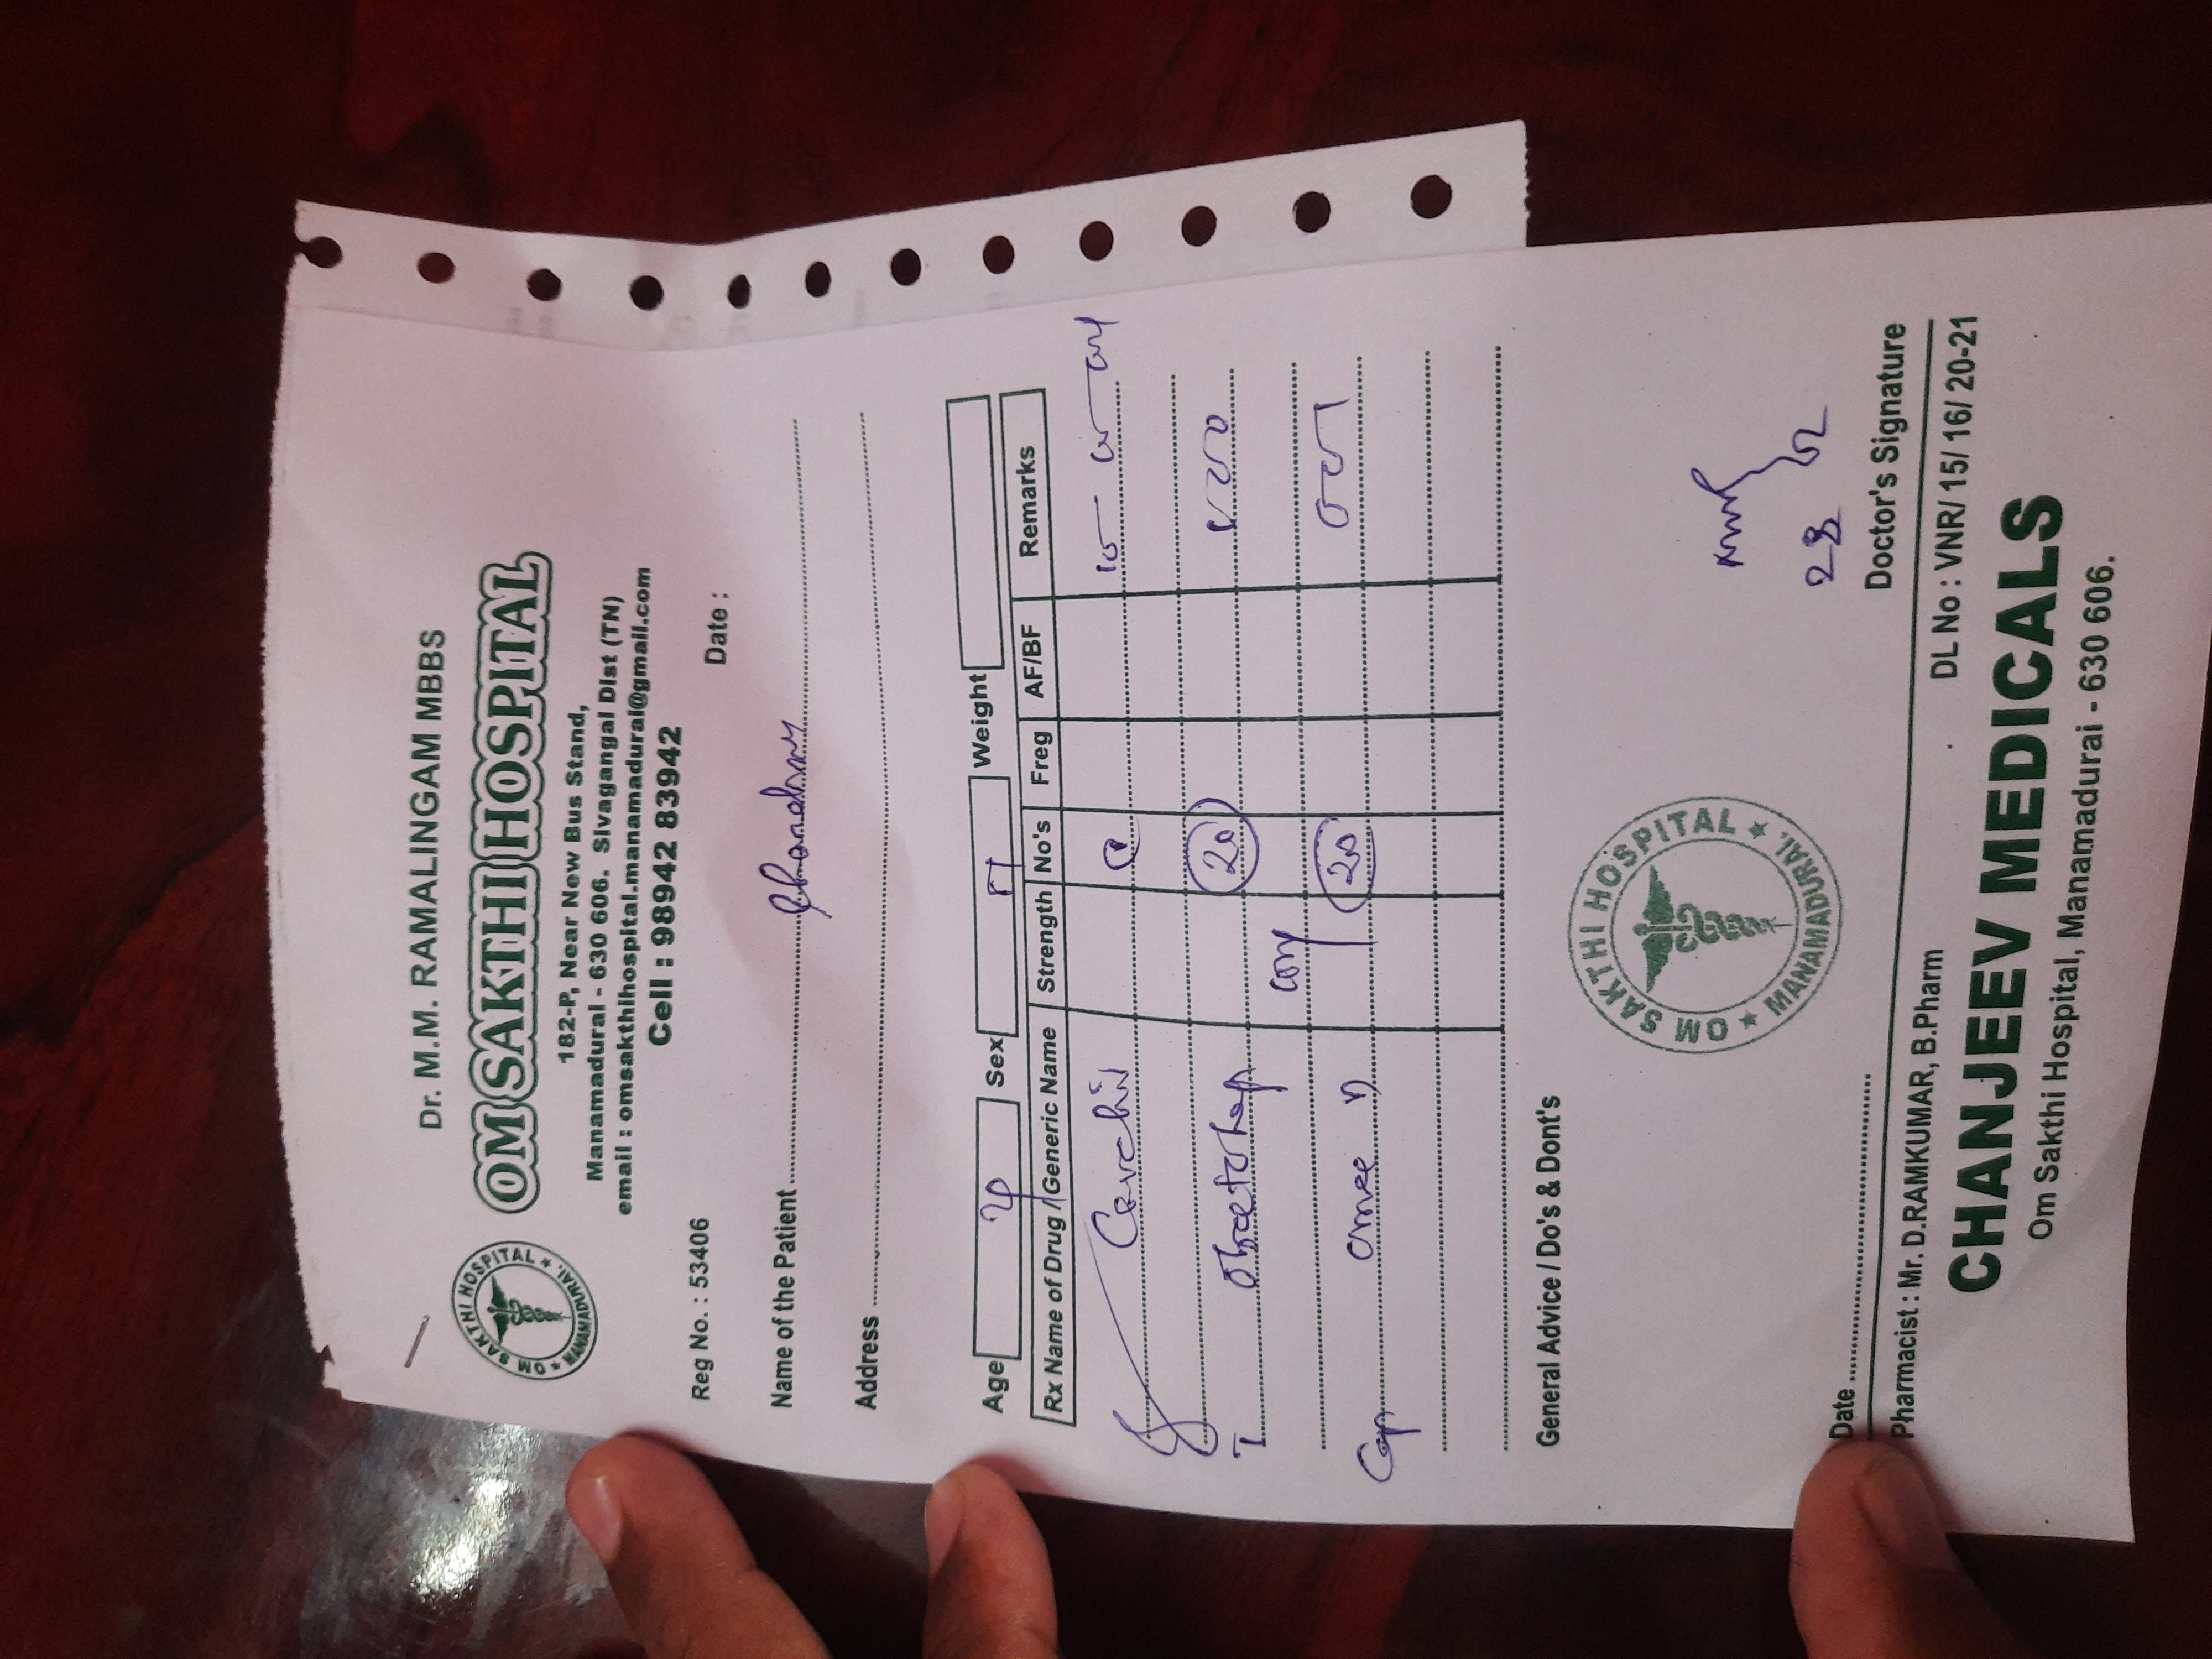 Dr. M.M. RAMALINGAM MBBS
OM SAKTHI HOSPITAL
OM SAKTHI HOSPITAL
★ MANAMADURAI. ★
182-P, Near New Bus Stand,
Manamadurai - 630 606. Sivagangai Dist (TN)
email : omsakthihospital.manamadurai@gmail.com
Cell : 98942 83942
Reg No. : 53406
Date :
Name of the Patient
Address
Age Sex Weight
Rx Name of Drug / Generic Name Strength No's Freg AF/BF Remarks
20
20
Cap
General Advice / Do's & Dont's
OM SAKTHI HOSPITAL
★ MANAMADURAI. ★
Date
Doctor's Signature
Pharmacist : Mr. D.RAMKUMAR, B.Pharm
DL No : VNR/ 15/ 16/ 20-21
CHANJEEV MEDICALS
Om Sakthi Hospital, Manamadurai - 630 606.